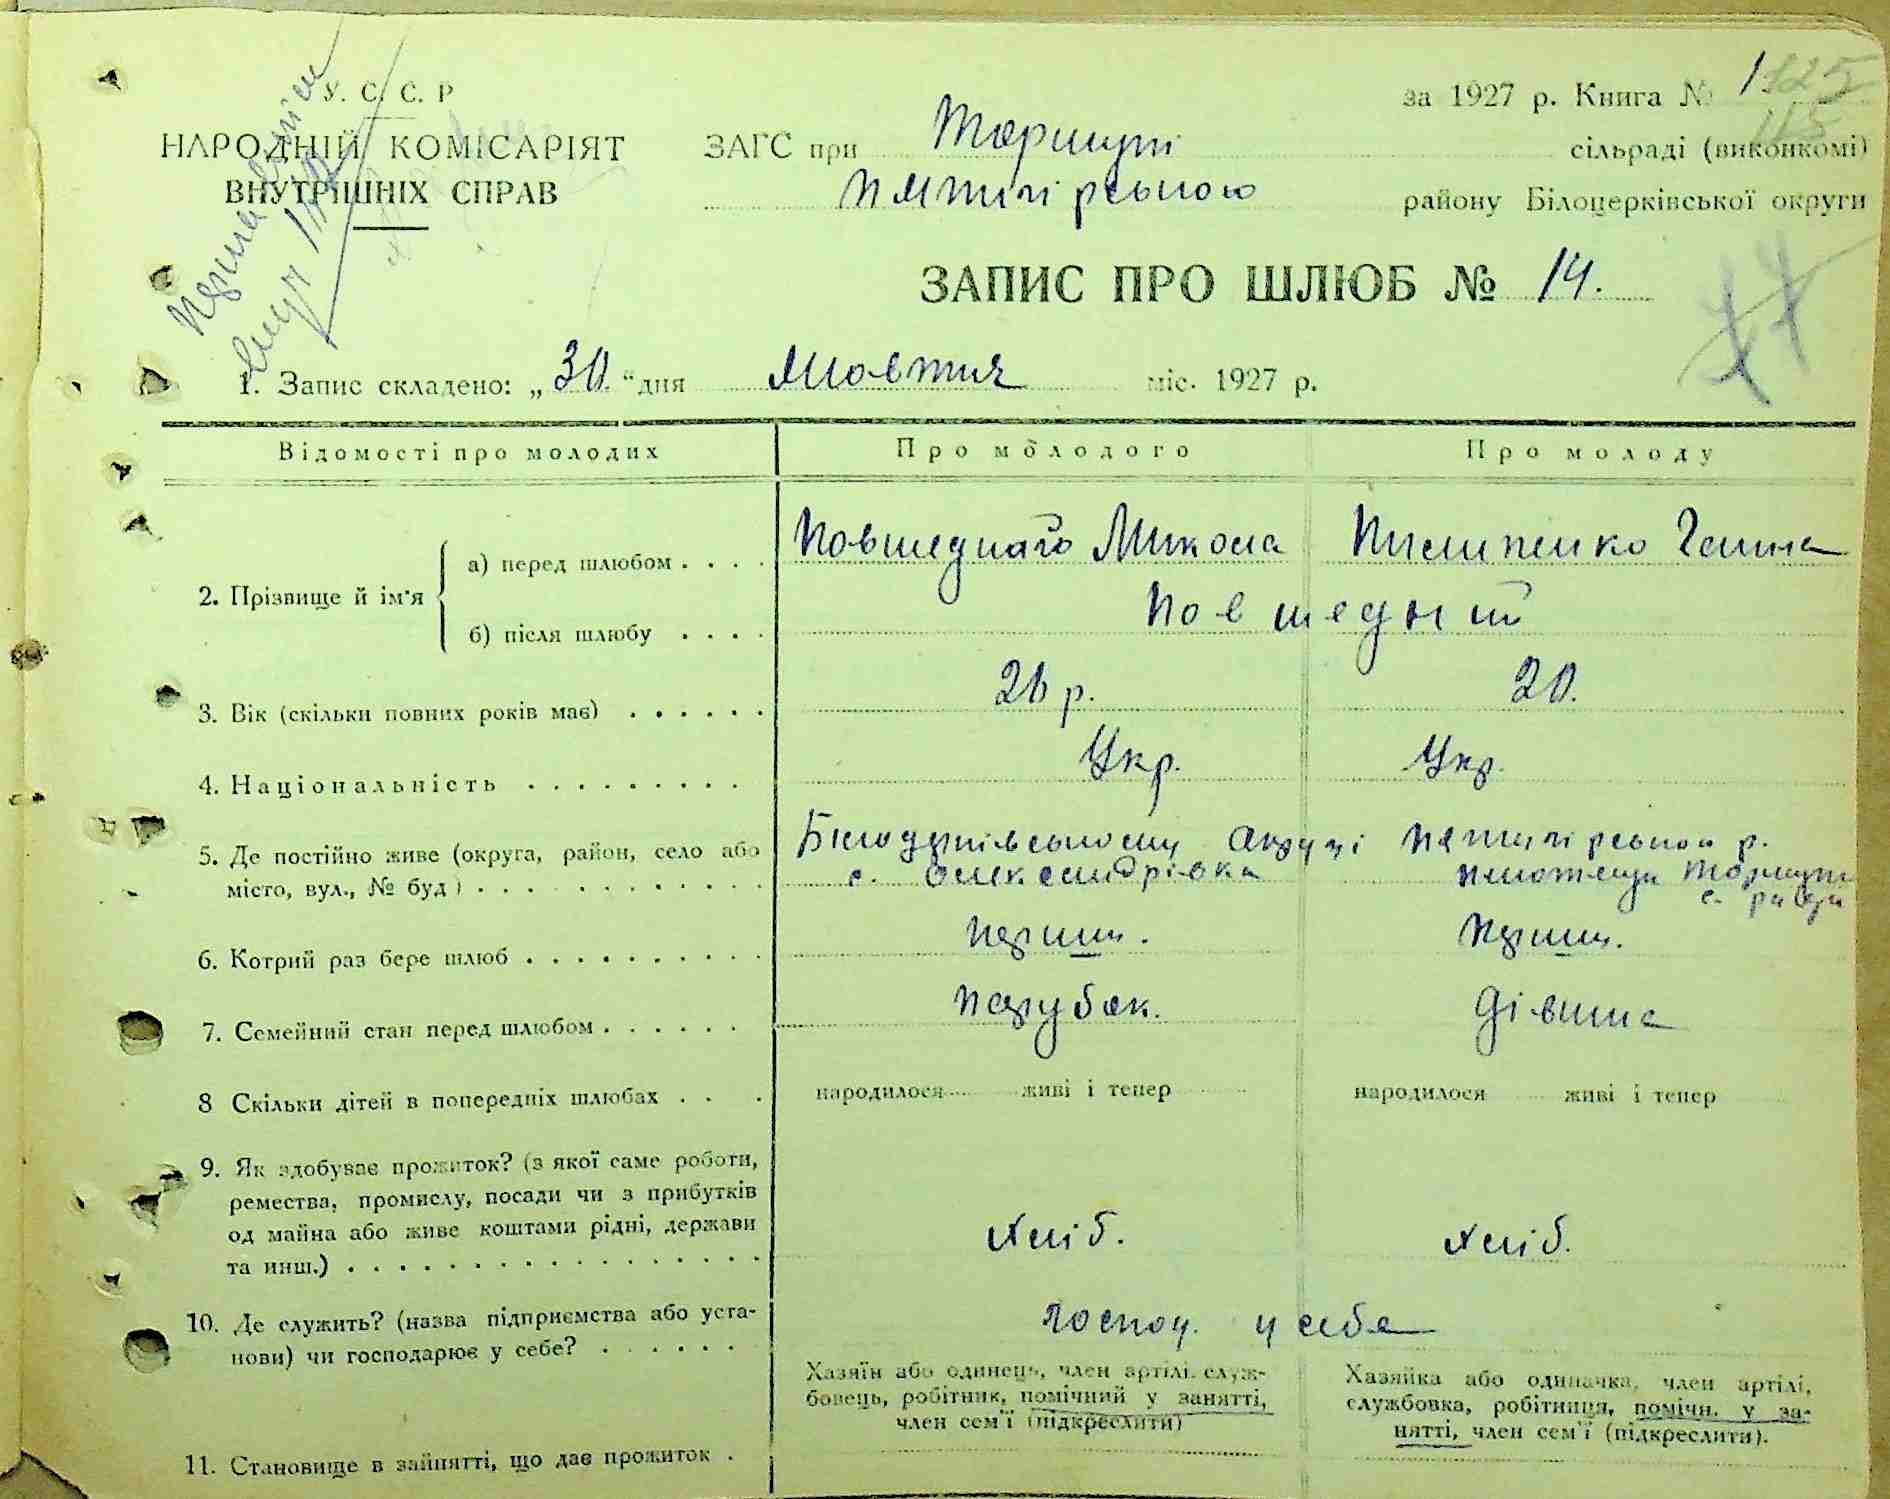 У. С. С. Р
за 1927 р. Книга № 1
НАРОДНІЙ КОМІСАРІЯТ
ВНУТРІШНІХ СПРАВ
ЗАГС при Торицькі сільраді (виконкомі)
Пятигірського району Білоцерківської округи
ЗАПИС ПРО ШЛЮБ № 14.
1. Запис складено: „30." дня Жовтня міс. 1927 р.
Відомості про молодих Про молодого Про молоду
2. Прізвище й ім'я
а) перед шлюбом . . . . Повшедного Микола Пилипенко Ганна
б) після шлюбу . . . . Повшедний
3. Вік (скільки повних років має) . . . . . . р. 20.
4. Національність . . . . . . . . . Укр. Укр.
5. Де постійно живе (округа, район, село або
місто, вул., № буд) . . . . . . . . . . . . с. Олександрівка
6. Котрий раз бере шлюб . . . . . . . . . . перший. перший.
7. Семейний стан перед шлюбом . . . . . . Парубок. Дівчина
8 Скільки дітей в попередніх шлюбах . . . народилося живі і тепер народилося живі і тепер
9. Як здобуває прожиток? (з якої саме роботи,
ремества, промислу, посади чи з прибутків
од майна або живе коштами рідні, держави
та инш.) . . . . . . . . . . . . . . . . Хліб. Хліб.
10. Де служить? (назва підприємства або уста-
нови) чи господарює у себе? . . . . . . Господ. у себе
Хазяїн або одинець, член артілі, служ-
бовець, робітник, помічний у занятті,
член сем'ї (підкреслити)
Хазяйка або одиначка, член артілі,
службовка, робітниця, помічн. у за-
нятті, член сем'ї (підкреслити).
11. Становище в зайнятті, що дає прожиток .